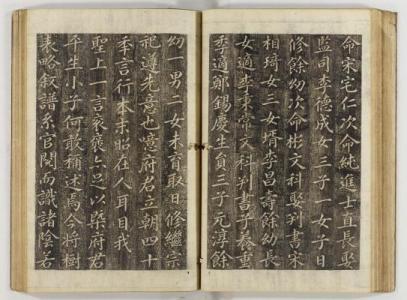 命宋宅仁次命純進士直長娶
監司李德成女三子一女子日
修餘幼次命彬文科娶判書宋
相琦女三女婿李昌壽餘幼長
女適李秉常文科判書子養重
季適鄭錫慶生員三子元淳餘
幼一男二女未育取日修繼宗
祀遵先意也噫府君立朝四十
季言行本末昭在人耳目我
聖上一言哀褒亦足以槩府君
平生小子何敢稱述焉今將樹
表略敘譜系官閥而識諸陰若